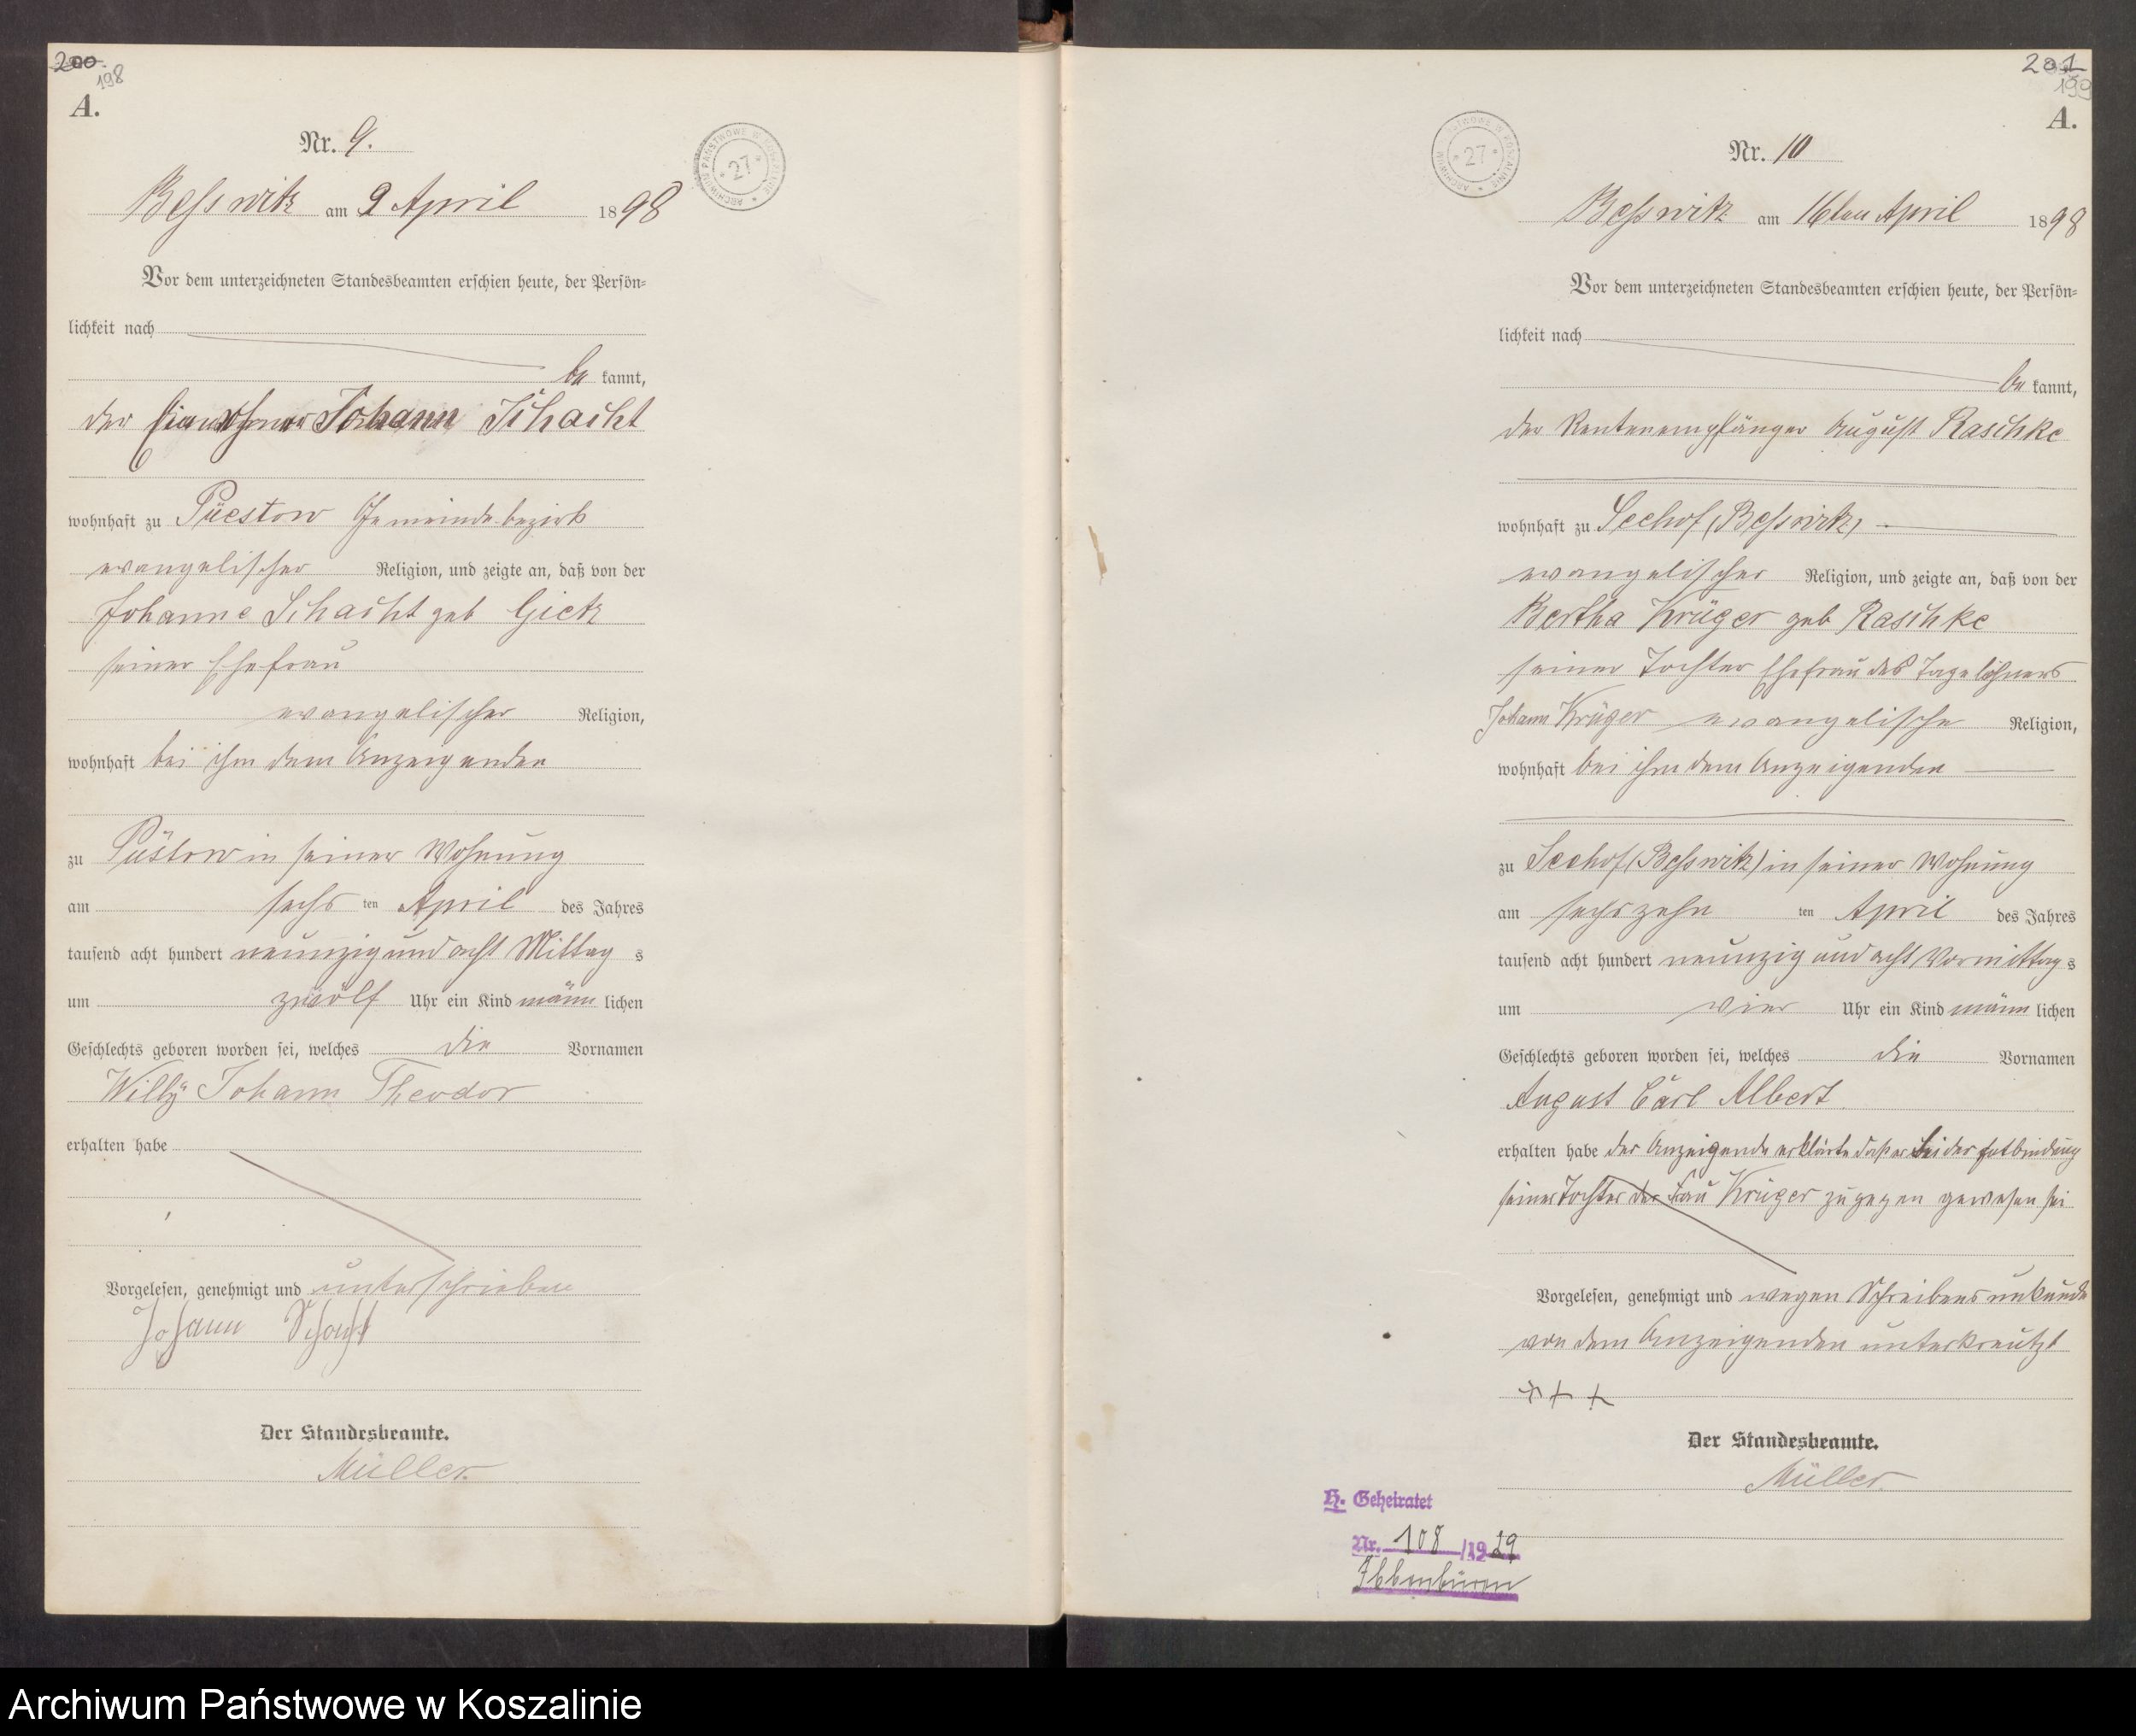 200
198
A.
Nr. 9.
Beßwitz am 9 April 1898
ARCHIWUM PAŃSTWOWE W KOSZALINIE * 27 *
Vor dem unterzeichneten Standesbeamten erschien heute, der Persön=
lichkeit nach
be kannt,
der Einwohner Johann Schacht
wohnhaft zu Püestow Gemeindebezirk
evangelischer Religion, und zeigte an, daß von der
Johanne Schacht geb Gietz
seiner Ehefrau
evangelischer Religion,
wohnhaft bei ihm dem Anzeigenden
zu Püstow in seiner Wohnung
am sechs ten April des Jahres
tausend acht hundert neunzig und acht Mittag s
um zwölf Uhr ein Kind männ lichen
Geschlechts geboren worden sei, welches die Vornamen
Willÿ Johann Theodor
erhalten habe
Vorgelesen, genehmigt und unterschrieben
Johann Schacht
Der Standesbeamte.
Müller.
201
199
A.
ARCHIWUM PAŃSTWOWE W KOSZALINIE * 27 *
Nr. 10
Beßwitz am 16ten April 1898
Vor dem unterzeichneten Standesbeamten erschien heute, der Persön=
lichkeit nach
be kannt,
der Rentenempfänger August Raschke
wohnhaft zu Seehof (Beßwitz)
evangelischer Religion, und zeigte an, daß von der
Bertha Krüger geb Raschke
seiner Tochter Ehefrau des Tagelöhners
Johann Krüger evangelische Religion,
wohnhaft bei ihm dem Anzeigenden
zu Seehof (Beßwitz) in seiner Wohnung
am sechszehn ten April des Jahres
tausend acht hundert neunzig und acht Vormittag s
um vier Uhr ein Kind männ lichen
Geschlechts geboren worden sei, welches die Vornamen
August Carl Albert
erhalten habe der Anzeigende erklärte daß er bei der Entbindung
seiner Tochter der Frau Krüger zugegen gewesen sei
Vorgelesen, genehmigt und wegen Schreibensunkunde
von dem Anzeigenden unterkreutzt
+ + +
Der Standesbeamte.
Müller.
H. Geheiratet
Nr. 108 /1929
Ibbenbüren
Archiwum Państwowe w Koszalinie